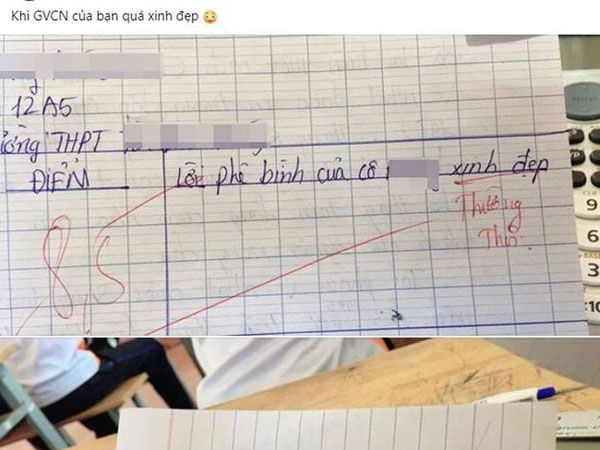 Khi GVCN của bạn quá xinh đẹp 😳
12A5
ường THPT
ĐIỂM
Lời phê bình của cô xinh đẹp
Thường
Thôi
8,5
9
6
3